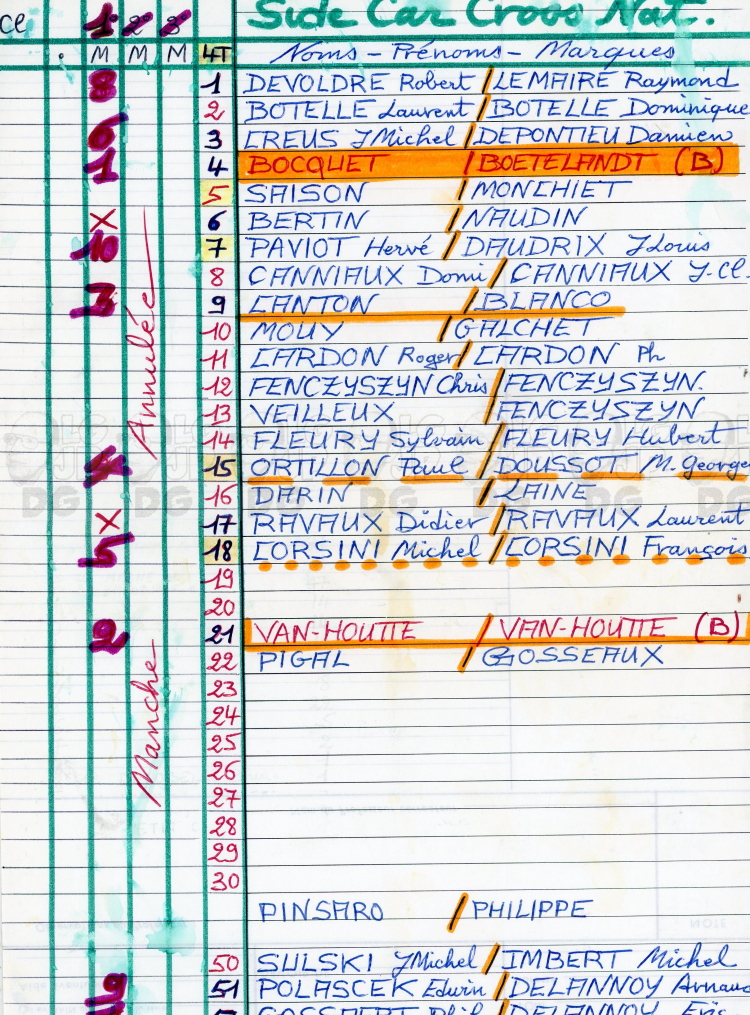 Side Car Cross Nat.
Cl 1º 2º 3
M M M 4T Noms - Prénoms - Marques
8 1 DEVOLDRE Robert / LEMAIRE Raymond
2 BOTELLE Laurent / BOTELLE Dominique
6 3 CREUS JMichel / DEPONTIEU Damien
1 4 BOCQUET / BOETELANDT (B.)
5 SAISON / MONCHIET
X 6 BERTIN / NAUDIN
10 7 PAVIOT Hervé / DAUDRIX JLouis
8 CANNIAUX Domi / CANNIAUX J-Cl.
3 9 CANTON / BLANCO
10 MOUY / GALCHET
11 CARDON Roger / CARDON Ph
12 FENCZYSZYN Chris / FENCZYSZYN.
13 VEILLEUX / FENCZYSZYN
14 FLEURY Sylvain / FLEURY Hubert
4 15 ORTILLON Paul / DOUSSOT M. George
16 DARIN / LAINE
X 17 RAVAUX Didier / RAVAUX Laurent
5 18 CORSINI Michel / CORSINI François
19
20
2 21 VAN-HOUTTE / VAN-HOUTTE (B)
22 PIGAL / GOSSEAUX
23
24
25
26
27
28
29
30
Manche Annulée
PINSARO / PHILIPPE
50 SULSKI JMichel / IMBERT Michel
51 POLASCEK Edwin / DELANNOY Arnaud
DELANNOY Eric
DG DG DG DG DG DG DG